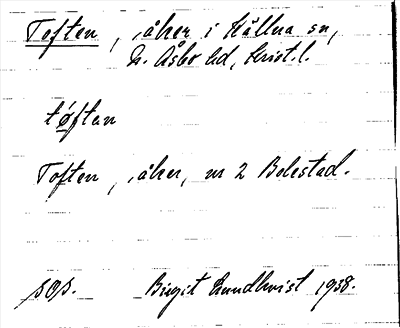 Toften, åker i Källna sn,
N. Åsbo hd, Krist. l.
tøftan
Toften, åker, nr 2 Bolestad.
SOS. Birgit Lundkvist 1938.